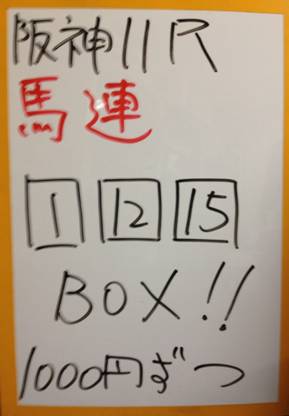 阪神11R
馬連
1 12 15
BOX!!
1000円ずつ